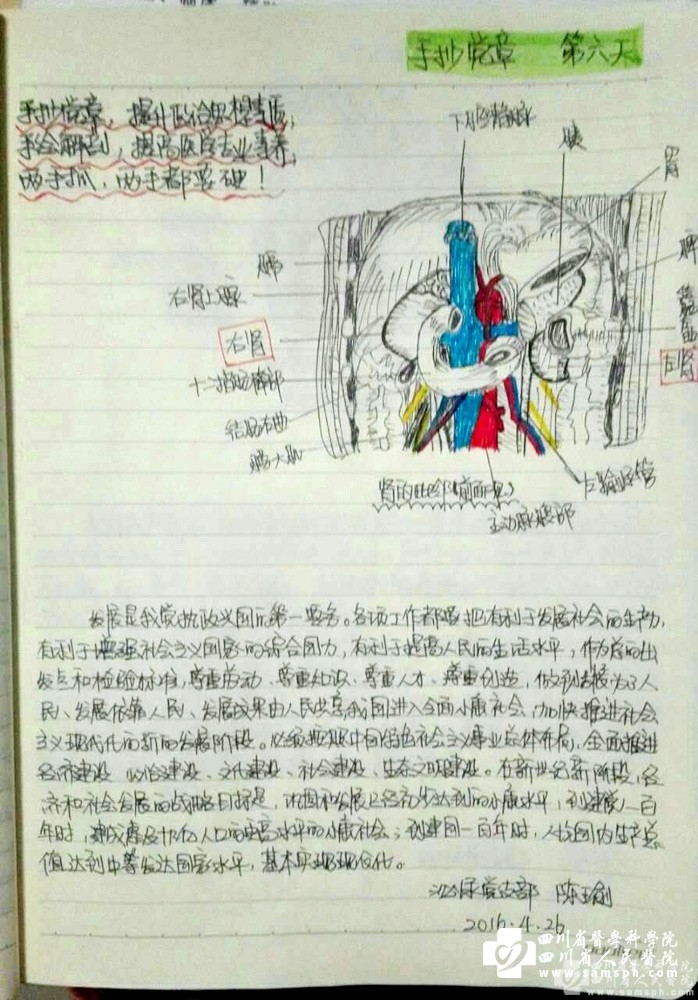 手抄党章 第六天
手抄党章，提升政治思想素质，
手绘解剖，提高医学专业素养，
两手抓，两手都要硬！
下腔静脉
胰
胃
肺
脾
右肾上腺
右肾
左肾
十二指肠降部
结肠右曲
腰大肌
左输尿管
肾的毗邻（前面观）
主动脉腹部
发展是我党执政兴国的第一要务。各项工作都要把有利于发展社会的生产力，
有利于增强社会主义国家的综合国力，有利于提高人民的生活水平，作为总的出
发点和检验标准，尊重劳动、尊重知识、尊重人才、尊重创造，做到发展为了人
民、发展依靠人民、发展成果由人民共享。我国进入全面小康社会，加快推进社会
主义现代化的新的发展阶段。必须按照中国特色社会主义事业总体布局，全面推进
经济建设、政治建设、文化建设、社会建设、生态文明建设。在新世纪新阶段，经
济和社会发展的战略目标是，巩固和发展已经初步达到的小康水平，到建党一百
年时，建成惠及十几亿人口的更高水平的小康社会；到建国一百年时，人均国内生产总
值达到中等发达国家水平，基本实现现代化。
泌尿党支部 陈
2016.4.26
四川省醫學科學院
四川省人民醫院
www.samsph.com